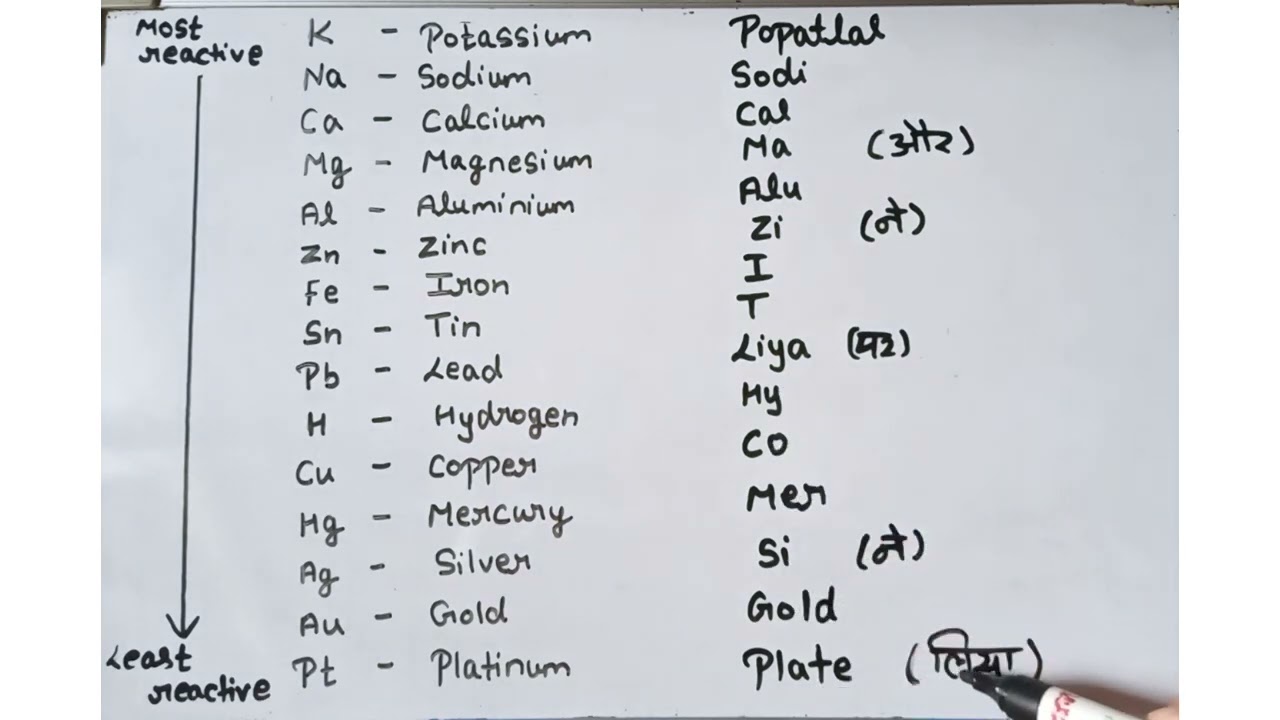 Most reactive
K - Potassium Popatlal
Na - Sodium Sodi
Ca - Calcium Cal
Mg - Magnesium Ma (और)
Al - Aluminium Alu
Zn - Zinc Zi (ने)
Fe - Iron I
Sn - Tin T
Pb - Lead Liya (पर)
H - Hydrogen Hy
Cu - Copper CO
Hg - Mercury Mer
Ag - Silver Si (ने)
Au - Gold Gold
Pt - Platinum Plate (लिया)
Least reactive